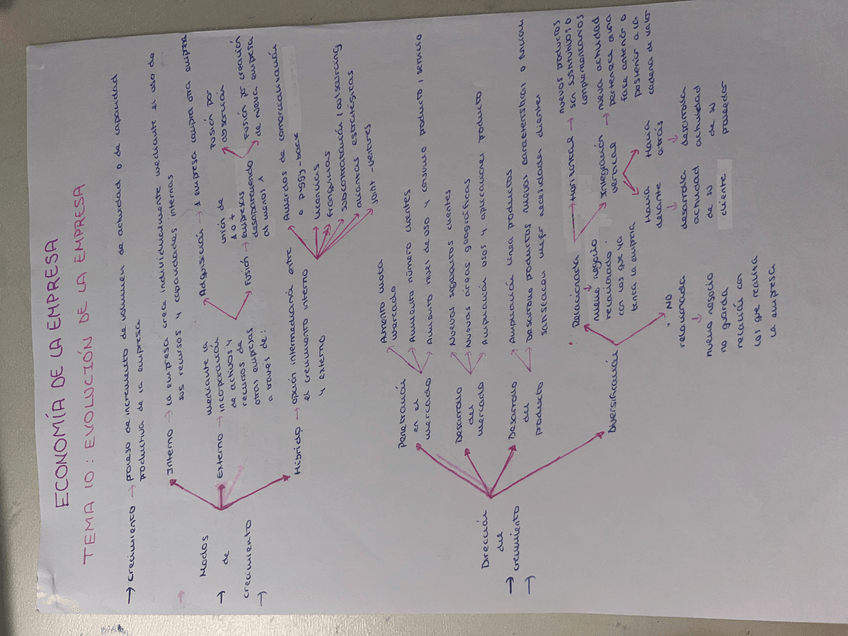 ECONOMÍA DE LA EMPRESA
TEMA 10: EVOLUCIÓN DE LA EMPRESA
→ crecimiento → proceso de incremento de volumen de actividad o de capacidad
productiva de la empresa
Modos
de
crecimiento
Interno → la empresa crece individualmente mediante el uso de
sus recursos y capacidades internas
Externo →
mediante la
incorporación
de activos y
recursos de
otras empresas
a través de:
Adquisición → 1 empresa compra otra empresa
Fusión →
unión de
2 o +
empresas
desapareciendo
al menos 1
Fusión por
absorción
Fusión por creación
de nueva empresa
Híbrido → opción intermediaria entre
el crecimiento interno
y externo
Acuerdos de comercialización
o piggy-back
licencias
franquicias
subcontratación / outsourcing
alianzas estratégicas
Joint-ventures
Dirección
del
crecimiento
Penetración
en el
mercado
Aumento cuota
mercado
Aumento número clientes
Aumento nivel de uso y consumo producto / servicio
Desarrollo
del
mercado
Nuevos segmentos clientes
Nuevas áreas geográficas
Ampliación usos y aplicaciones producto
Desarrollo
del
producto
Ampliación línea productos
Desarrolle productos nuevas características o funcion
satisfacen mejor necesidades clientes
Diversificación
Relacionada
→ nuevo negocio
relacionado
con los que ya
tenía la empresa
Horizontal →
nuevos productos
son sustitutivos o
complementarios
Integración
vertical →
nueva actividad
pertenece a una
fase anterior o
posterior a la
cadena de valor
Hacia
delante
↓
desarrolla
actividad
de su
cliente
Hacia
atrás
↓
desarrolla
actividad
de su
proveedor
No
relacionada
↓
nuevo negocio
no guarda
relación con
los que realiza
la empresa